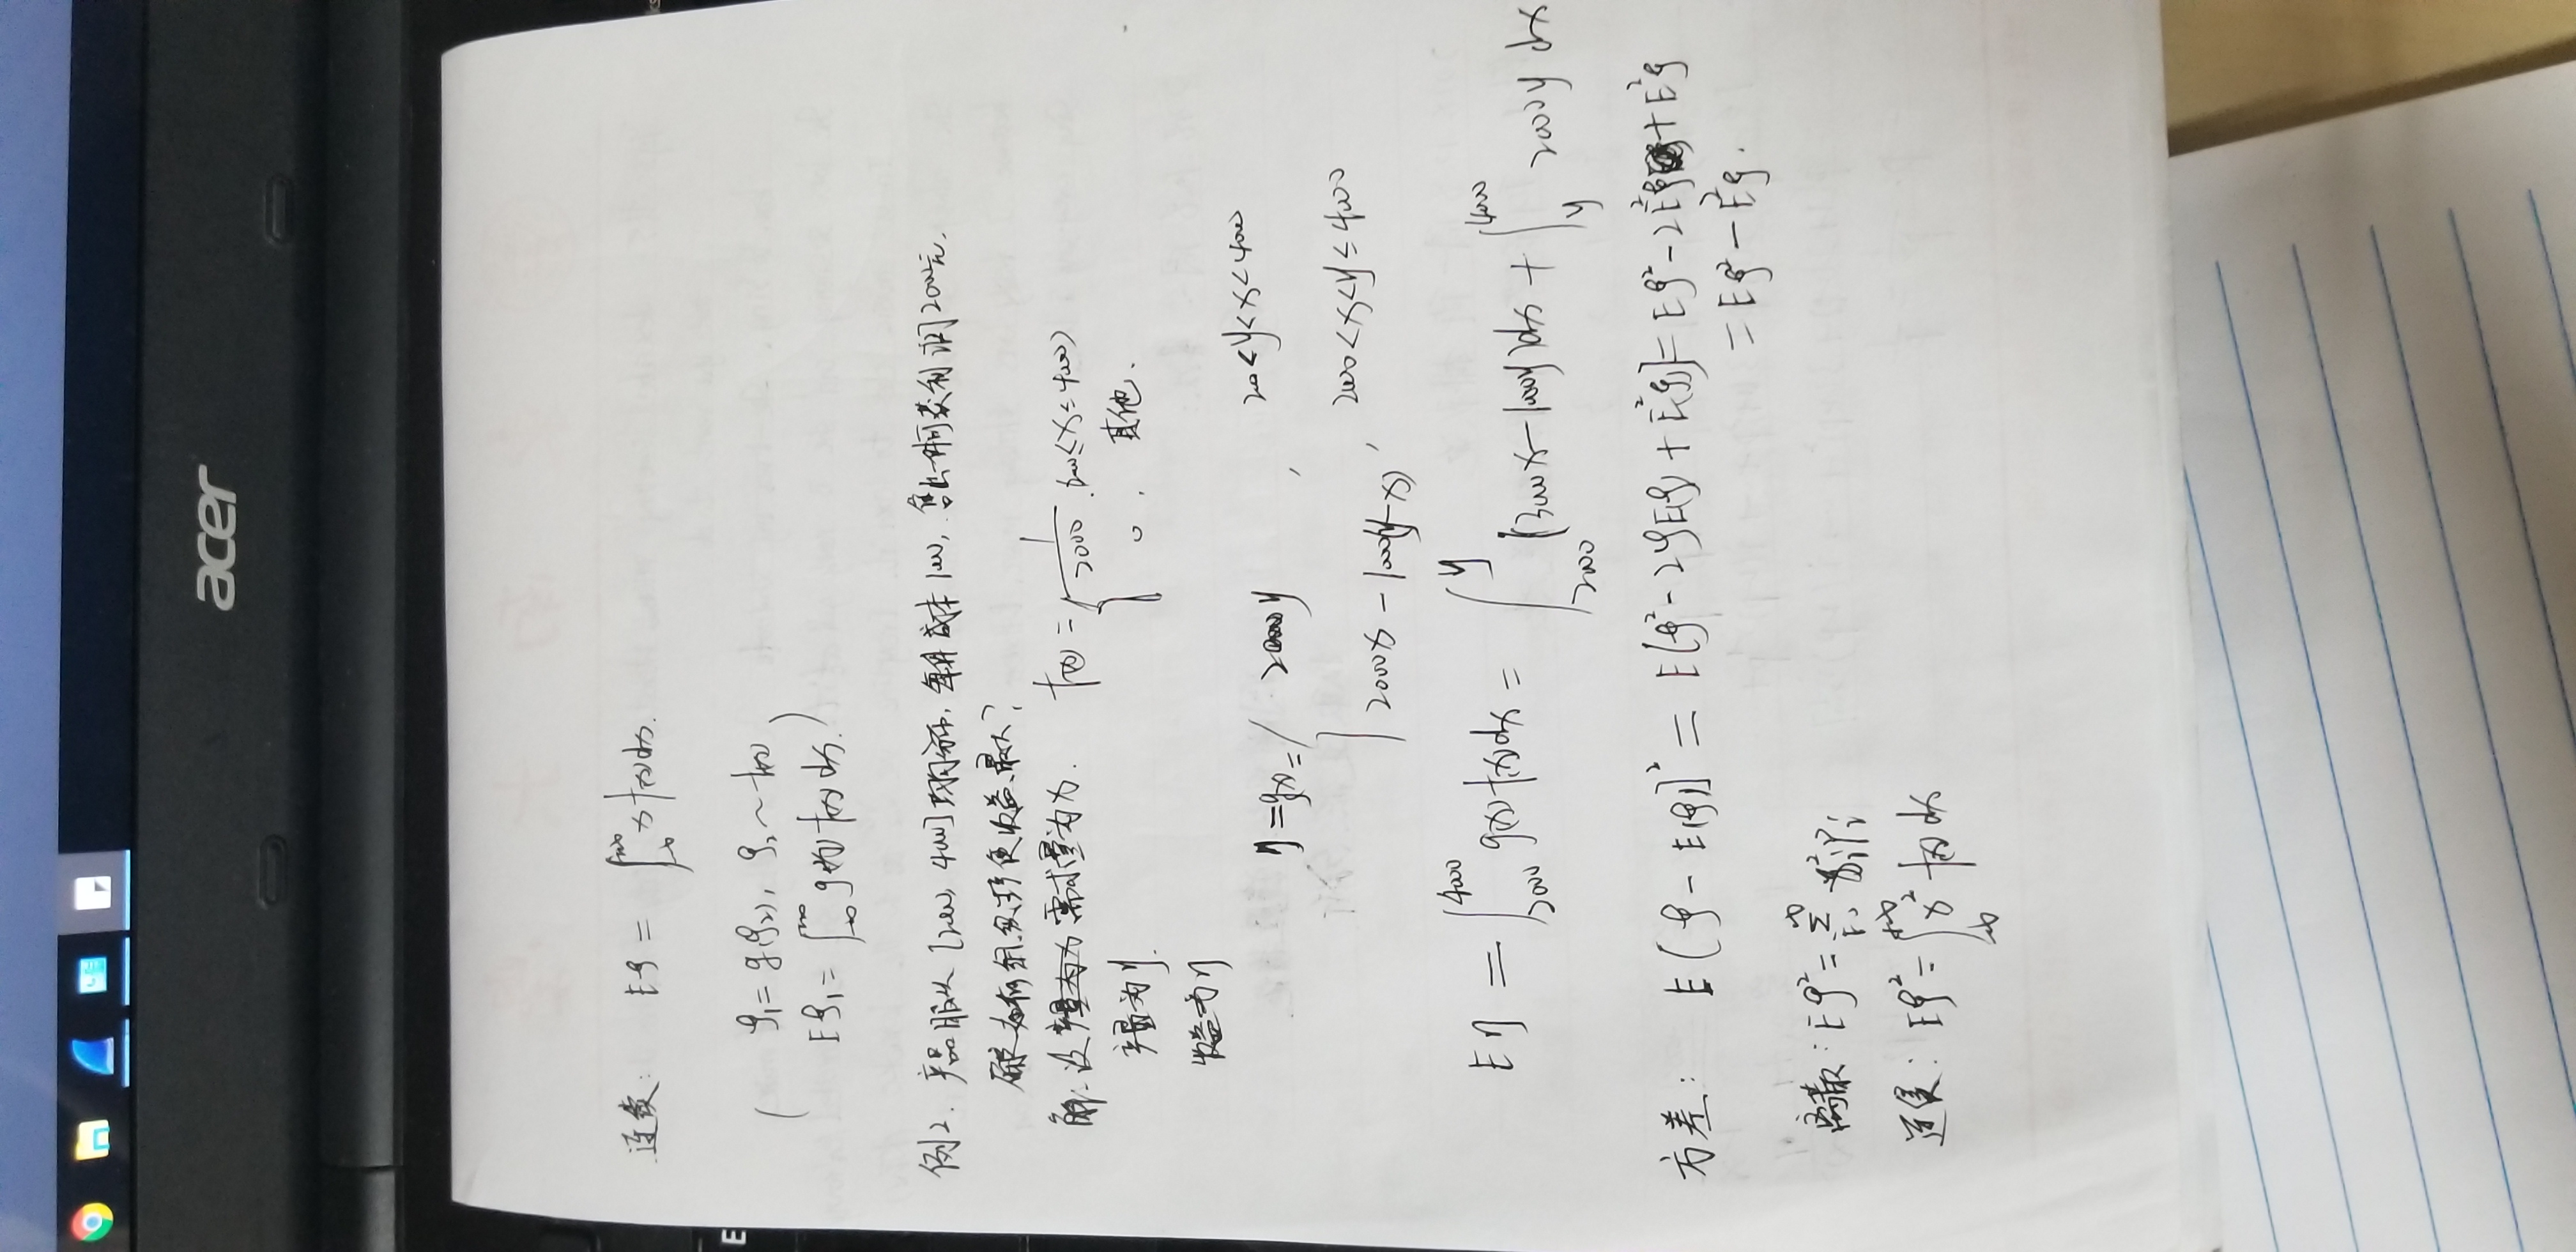 acer
E
连续: Eξ = ∫_{-∞}^{+∞} x f(x) dx.
( ξ₁ = g(ξ₂), ξ₂ ~ f(x)
Eξ₁ = ∫_{-∞}^{+∞} g(x) f(x) dx. )
例2. 产品服从 [2000, 4000] 均匀分布, 每件成本1000, 售出一件可获利润2000元.
使收益最大?
解: 设 需求量为x. f(x) = { 1/2000, 2000≤x≤4000
产量为y. 0, 其他.
收益为η
η = g(x) = { 2000y, 2000<y<x<4000
2000x - 1000(y-x), 2000<x<y≤4000
Eη = ∫_{2000}^{4000} g(x) f(x) dx = ∫_{2000}^{y} (3000x - 1000y) dx + ∫_{y}^{4000} 2000y dx
方差: E[ξ - E(ξ)]² = E[ξ² - 2ξE(ξ) + E²(ξ)] = Eξ² - 2E²ξ + E²ξ
= Eξ² - E²ξ.
离散: Eξ² = Σ x_i² P_i
连续: Eξ² = ∫_{-∞}^{+∞} x² f(x) dx